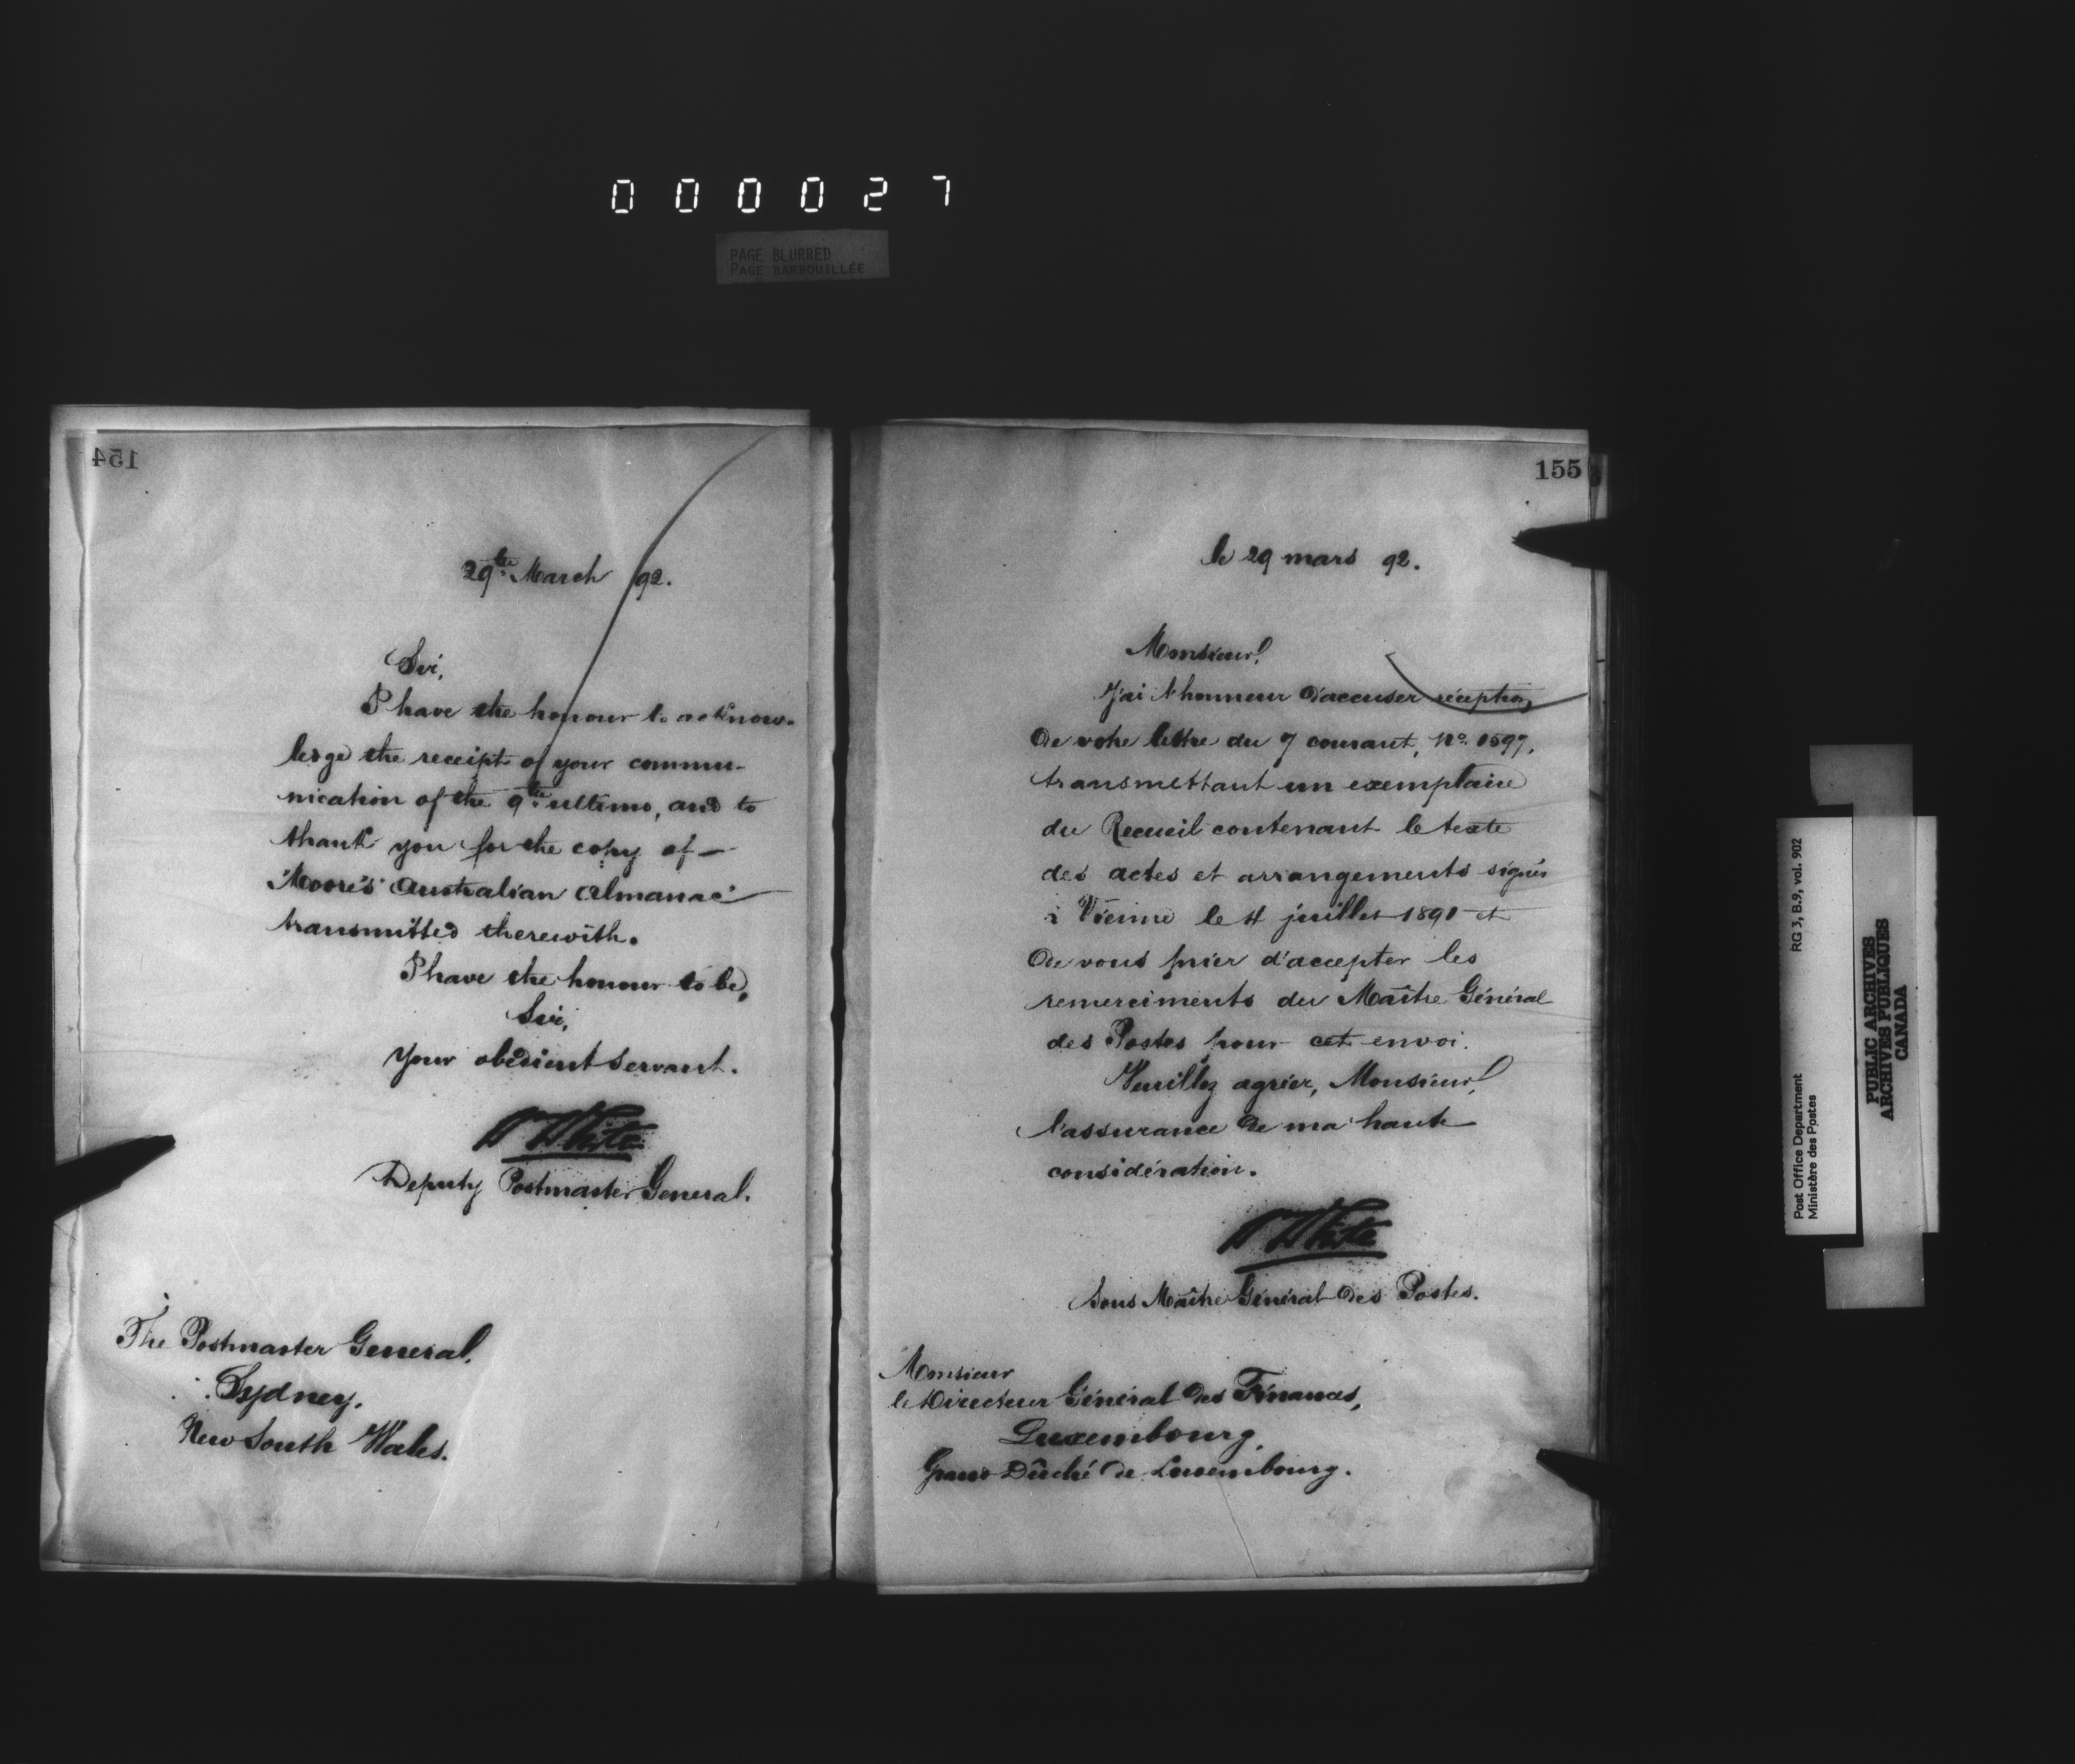 000027
PAGE BLURRED
PAGE BARBOUILLÉE
154
29th March 92.
Sir,
I have the honour to acknow-
ledge the receipt of your commu-
nication of the 9th ultimo, and to
thank you for the copy of
"Moore's Australian Almanac"
transmitted therewith.
I have the honour to be,
Sir,
Your obedient Servant.
W White
Deputy Postmaster General.
The Postmaster General,
Sydney,
New South Wales.
155
le 29 mars 92.
Monsieur,
J'ai l'honneur d'accuser réception
de votre lettre du 7 courant, No. 1597,
transmettant un exemplaire
du Recueil contenant le texte
des actes et arrangements signés
à Vienne le 4 juillet 1891 et
de vous prier d'accepter les
remerciments du Maître Général
des Postes pour cet envoi.
Veuillez agréer, Monsieur,
l'assurance de ma haute
considération.
W White
Sous Maître Général des Postes.
Monsieur
le Directeur Général des Finances,
Luxembourg,
Grand Dûché de Luxembourg.
Post Office Department
Ministère des Postes
RG 3, B.9, vol. 902
PUBLIC ARCHIVES
ARCHIVES PUBLIQUES
CANADA